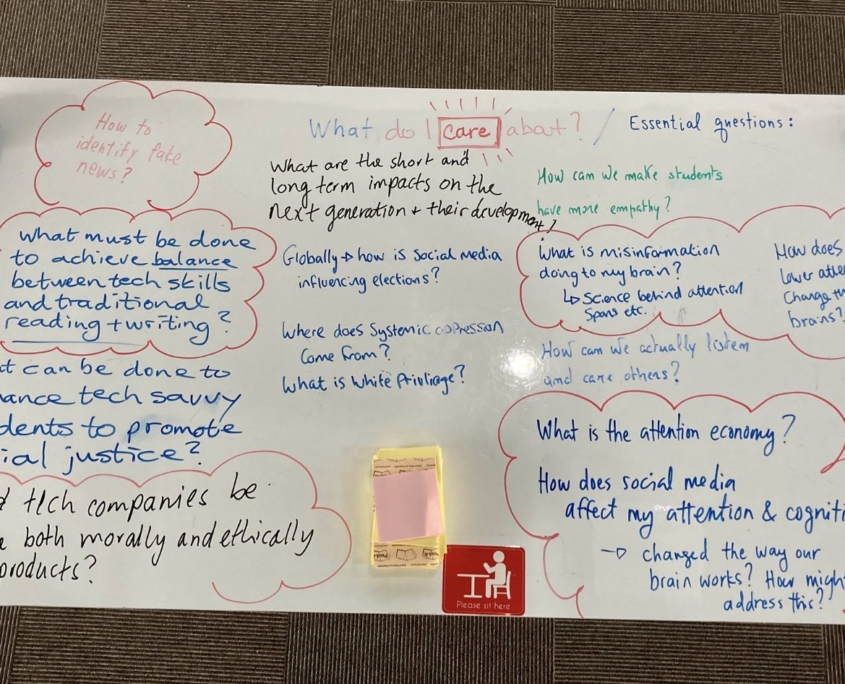 How to
identify fake
news?
What do I care about? / Essential questions:
What are the short and
long term impacts on the
next generation + their development?
How can we make students
have more empathy?
what must be done
to achieve balance
between tech skills
and traditional
reading + writing?
Globally → how is social media
influencing elections?
What is misinformation
doing to my brain?
↳ Science behind attention
spans etc.
How does
lower atte
change th
brains?
Where does Systemic oppression
Come from?
What is White Privliage?
How can we actually listen
and care others?
t can be done to
ance tech savvy
dents to promote
ial justice?
tech companies be
both morally and ethically
products?
What is the attention economy?
How does social media
affect my attention & cogniti
→ changed the way our
brain works? How migh
address this?
Please sit here